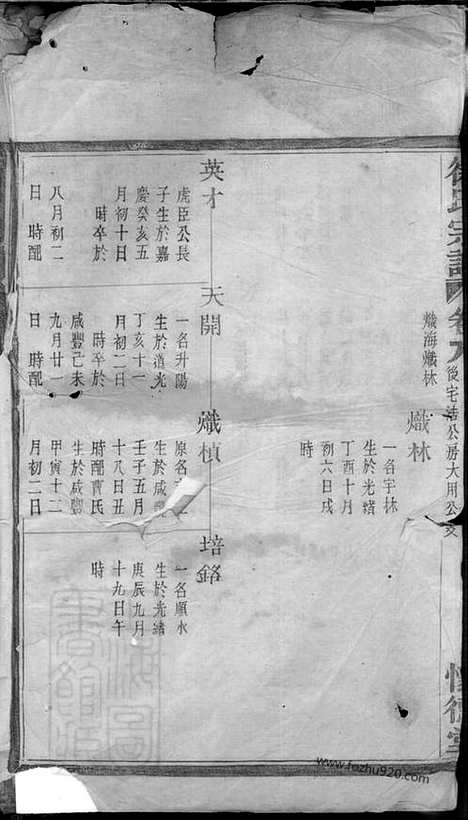 氏宗譜
卷九
後宅 公房大用公支
德堂
熾海熾林
熾林
一名宇林
生於光緒
丁酉十月
初六日戌
時
英才
虎臣公長
子生於嘉
慶癸亥五
月初十日
時卒於
八月初二
日 時配
天開
一名升陽
生於道光
丁亥十一
月初二日
時卒於
咸豐己未
九月廿一
日 時配
熾楨
原名
生於咸
壬子五月
十八日丑
時配 氏
生於咸豐
甲寅十二
月初二日
培銘
一名順水
生於光緒
庚辰九月
十九日午
時
海圖
書館藏
www.tozhu920.com